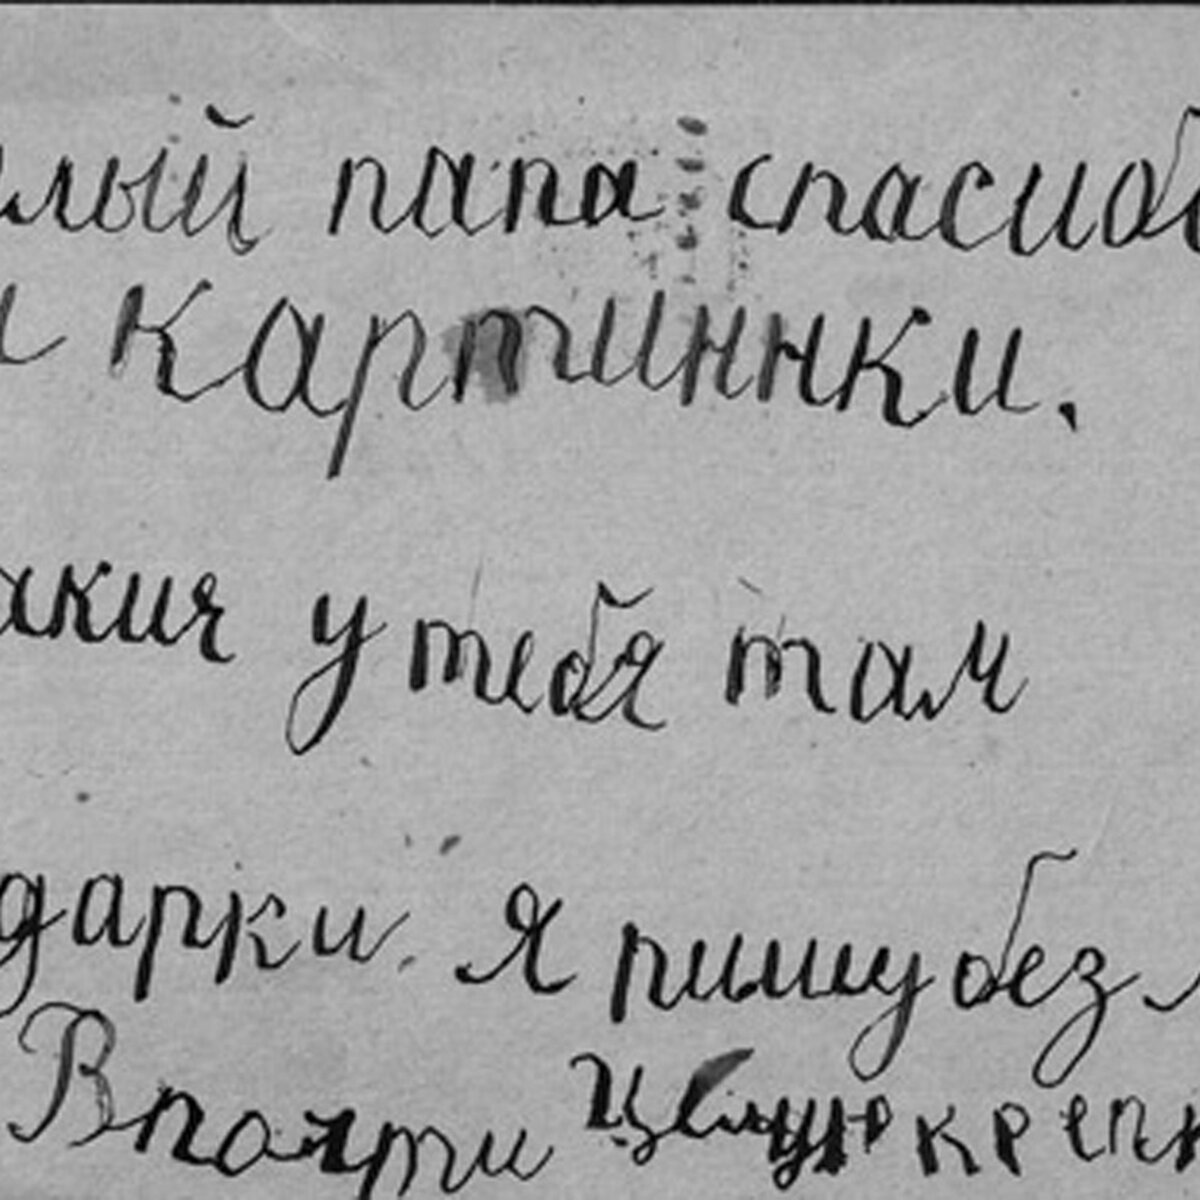 лый папа спасибо
картиннки.
акия у тебя там
дарки. Я пишу без
Целую креп